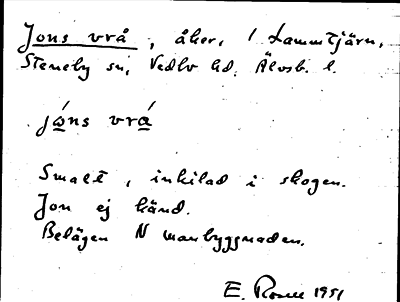 Jons vrå, åker, 1 Lammtjärn,
Steneby sn, Vedbo hd. Älvsb. l.
jó̲ns vrá̲
Smalt, inkilad i skogen.
Jon ej känd.
Belägen N manbyggnaden.
E. Rosell 1951